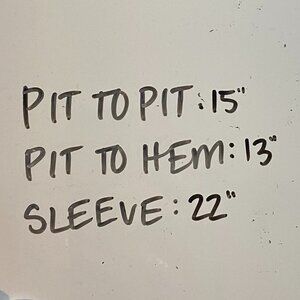 PIT TO PIT: 15"
PIT TO HEM: 13"
SLEEVE: 22"